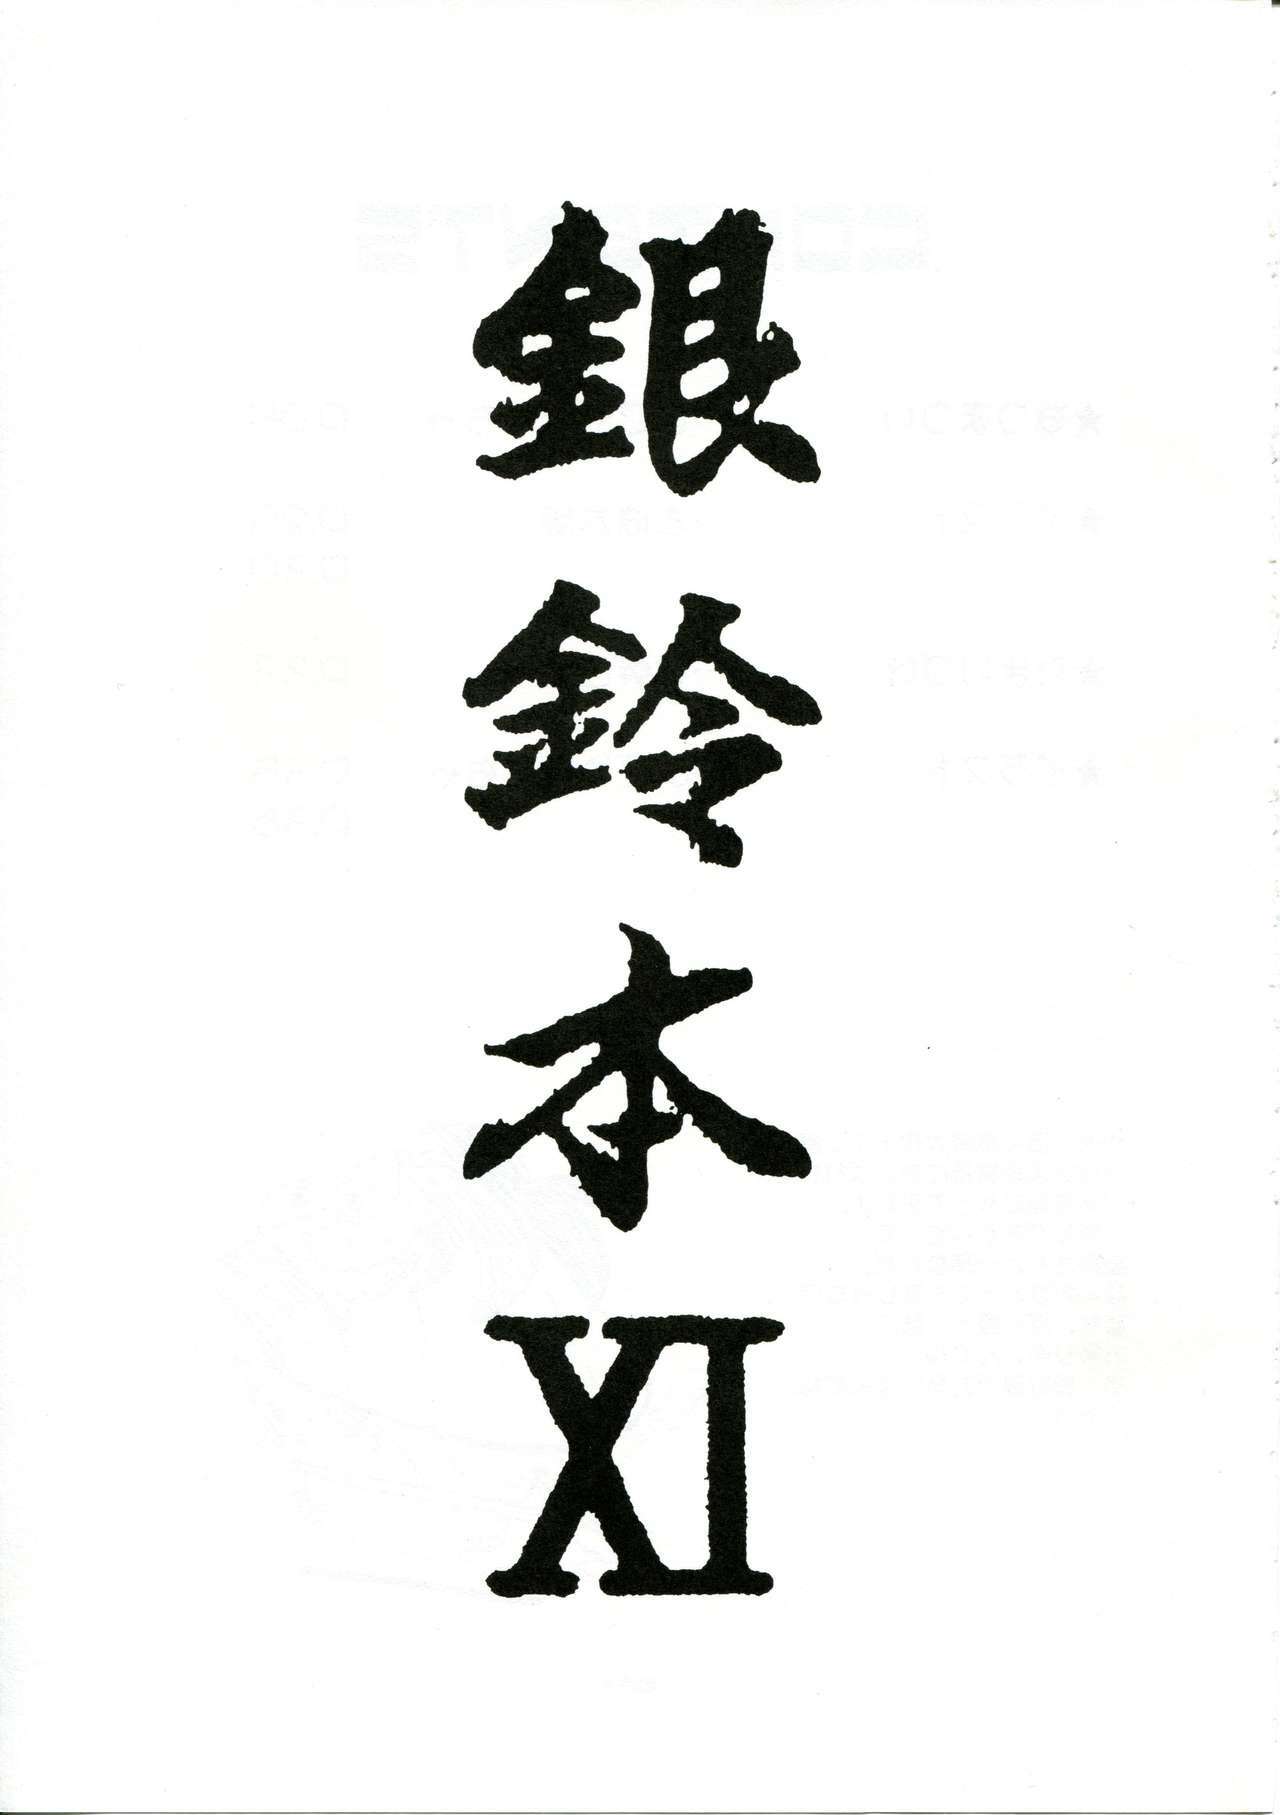 銀鈴本XI